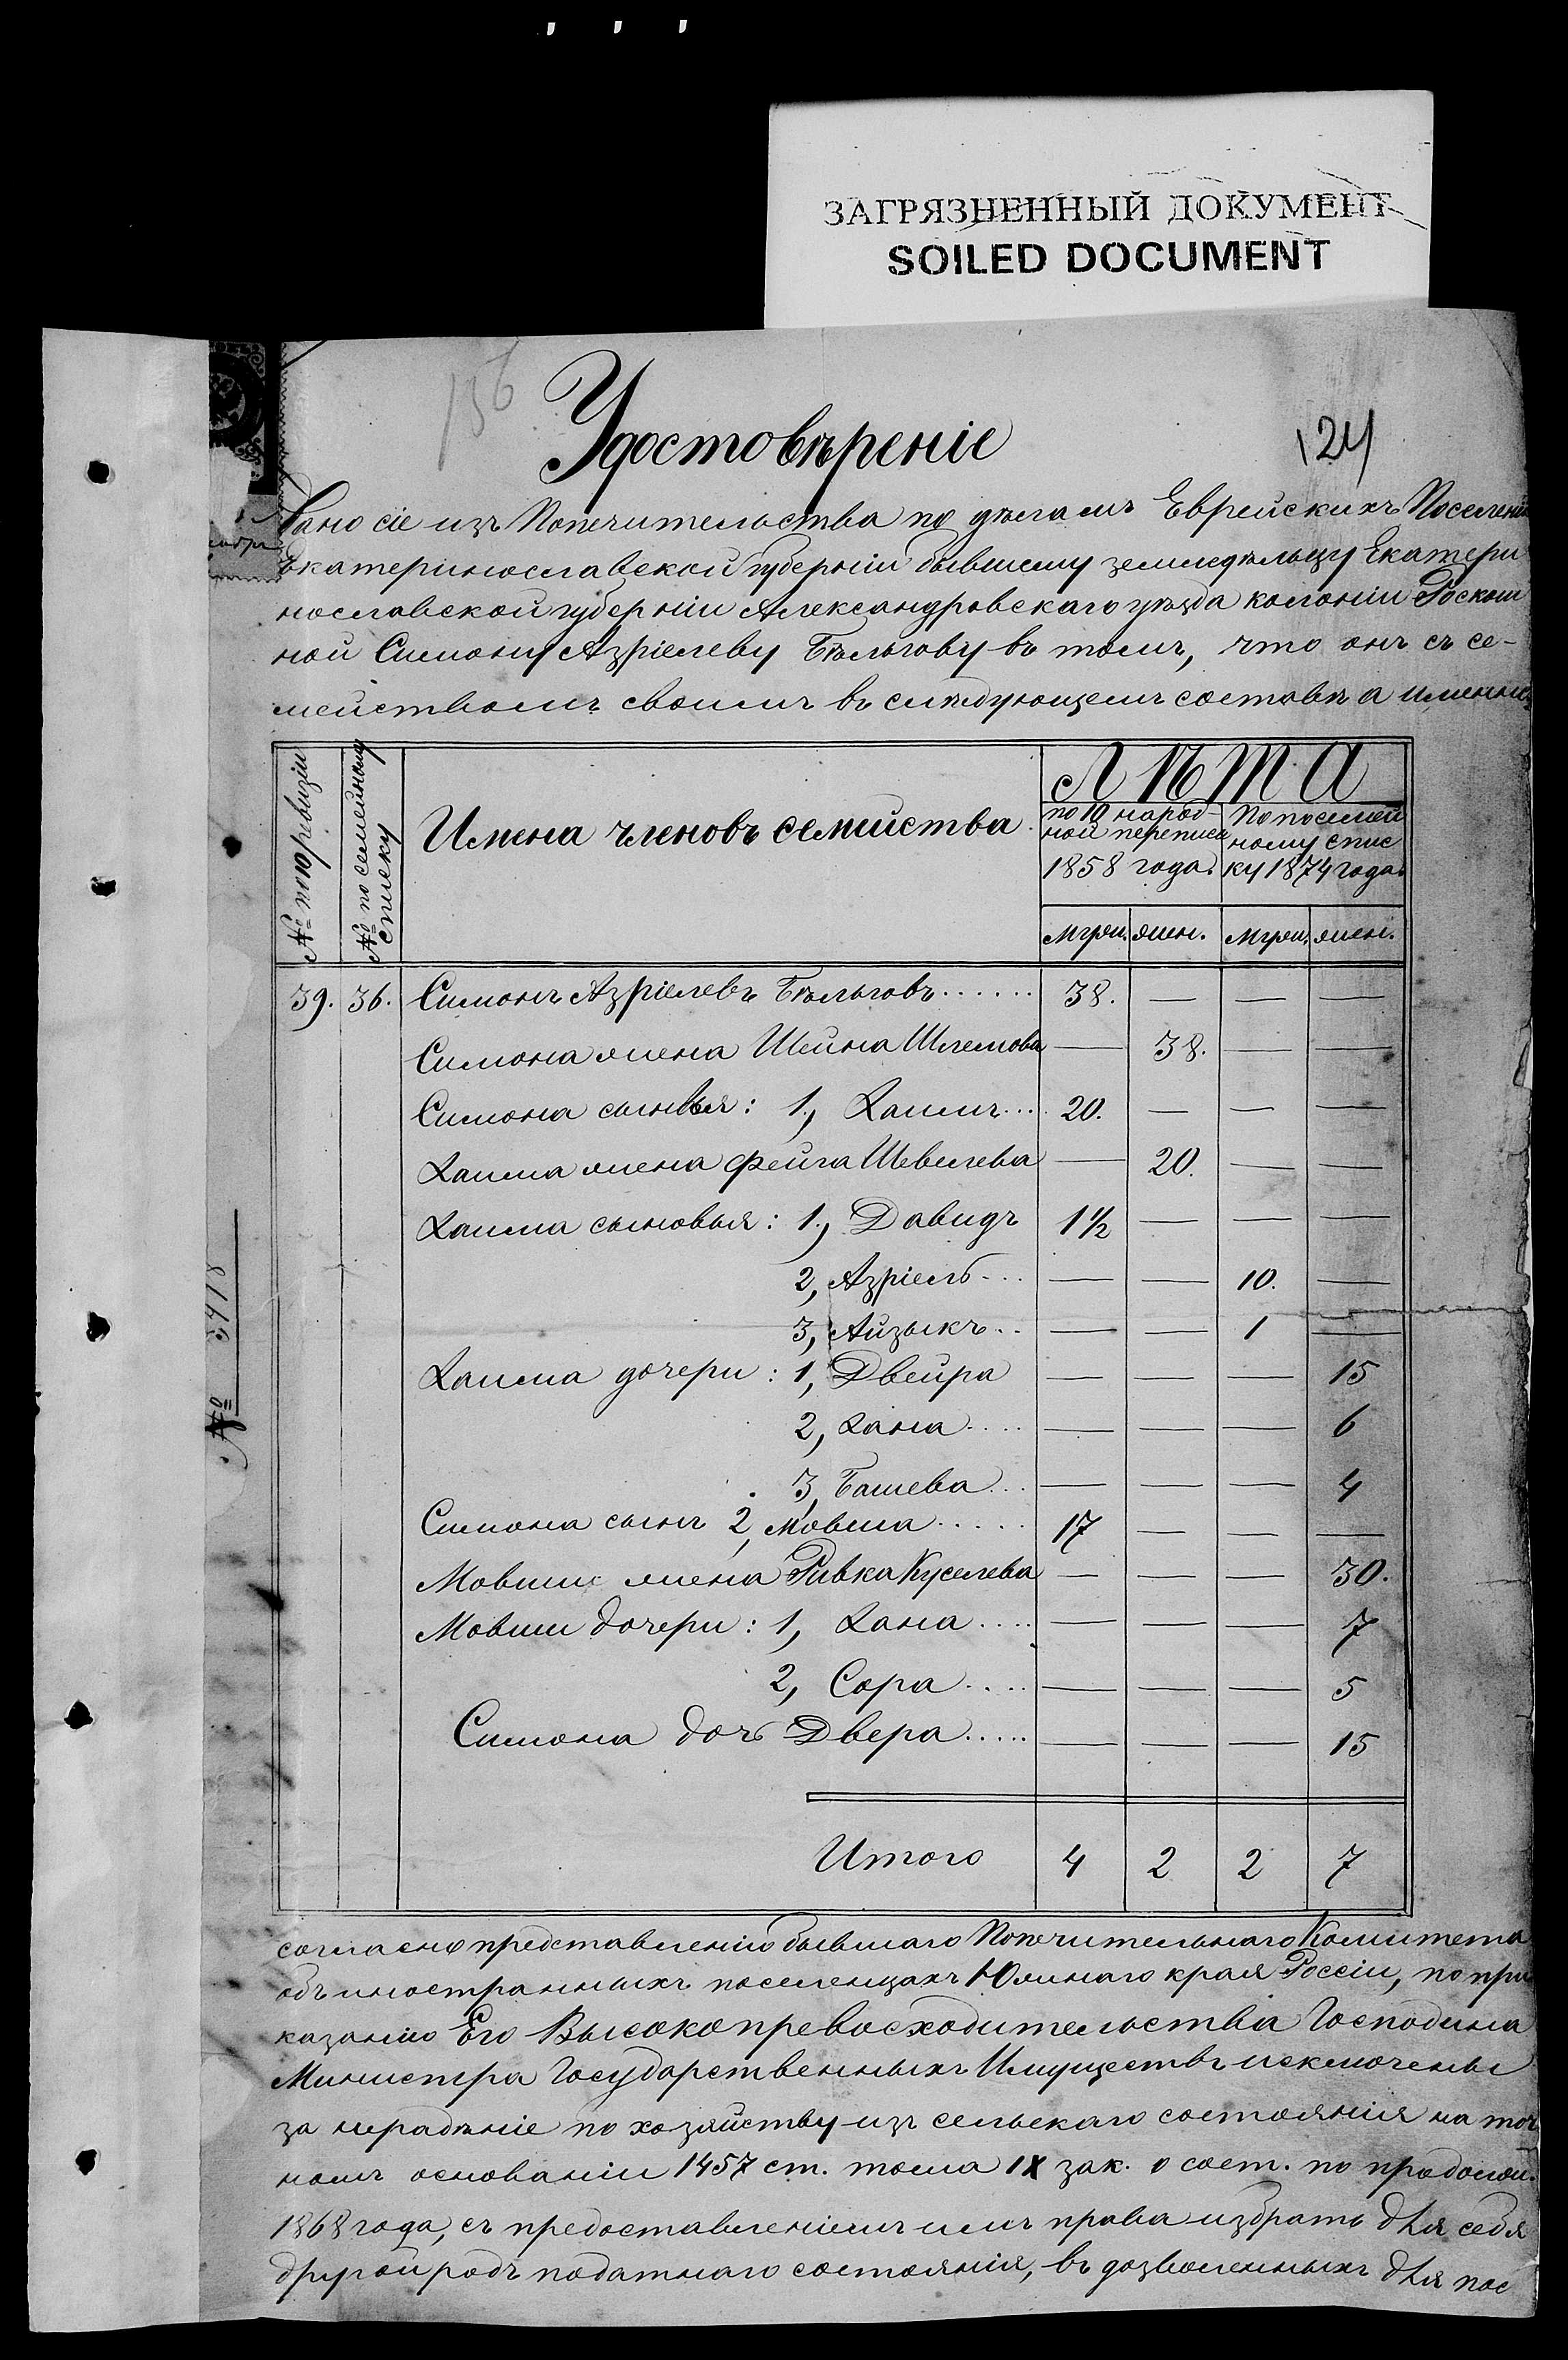 ЗАГРЯЗНЕННЫЙ ДОКУМЕНТ
SOILED DOCUMENT
156
Удостовѣреніе
124
Дано сіе изъ Попечительства по дѣламъ Еврейскихъ Поселеній
Екатеринославской губерніи бывшему земледѣльцу Екатери
нославской губерніи Александровскаго уѣзда колоніи Роскош
ной Симону Азріелеву Бѣльгову въ томъ, что онъ съ се-
мействомъ своимъ въ слѣдующемъ составѣ а именно
№ по 10 ревизіи
№ по семейному списку
Имена членовъ семейства
Лѣта
по 10 народ-
ной переписи
1858 года.
По посемей
ному спис
ку 1874 года.
Мужч. жен. Мужч. жен.
39. 36. Симонъ Азріелевъ Бѣльговъ...... 38. — — —
Симона жена Шейна Шлемова — 38. — —
Симона сыновья: 1, Хаимъ.... 20. — — —
Хаима жена Фейга Шевелева — 20. — —
Хаима сыновья: 1, Давидъ 1½ — — —
2, Азріель... — — 10. —
3, Айзыкъ.. — — 1 —
Хаима дочери: 1, Двейра — — — 15
2, Хана.... — — — 6
3, Башева... — — — 4
Симона сынъ 2, Мовша..... 17 — — —
Мовши жена Ривка Куселева — — — 30.
Мовши дочери: 1, Хана.... — — — 7
2, Сора.... — — — 5
Симона дочь Двера..... — — — 15
Итого 4 2 2 7
№ 5418
согласно представленію бывшаго Попечительнаго Комитета
объ иностранныхъ поселенцахъ Южнаго края Россіи, по при
казанію Его Высокопревосходительства Господина
Министра Государственныхъ Имуществъ исключены
за нерадѣніе по хозяйству изъ сельскаго состоянія на точ
номъ основаніи 1457 ст. тома IX зак. о сост. по продолж.
1868 года, съ предоставленіемъ имъ права избрать для себя
другой родъ податнаго состоянія, въ дозволенныхъ для пос